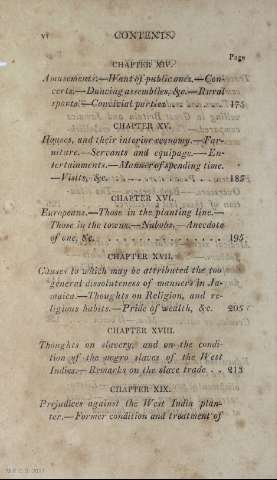 vi CONTENTS.
Page
CHAPTER XIV.
Amusements.—Want of public ones.—Con-
certs.—Dancing assemblies, &c.—Rural
sports.—Convivial parties 175
CHAPTER XV.
Houses, and their interior economy.—Fur-
niture.—Servants and equipage.—En-
tertainments.—Manner of spending time.
—Visits, &c. . . . . . . . . . . . . . . 185
CHAPTER XVI.
Europeans.—Those in the planting line.—
Those in the towns.—Nabobs.—Anecdote
of one, &c. . . . . . . . . . . . . . . . 195
CHAPTER XVII.
Causes to which may be attributed the too
general dissoluteness of manners in Ja-
maica.—Thoughts on Religion, and re-
ligious habits.—Pride of wealth, &c. 205
CHAPTER XVIII.
Thoughts on slavery, and on the condi-
tion of the negro slaves of the West
Indies.—Remarks on the slave trade . . 213
CHAPTER XIX.
Prejudices against the West India plan-
ter.—Former condition and treatment of